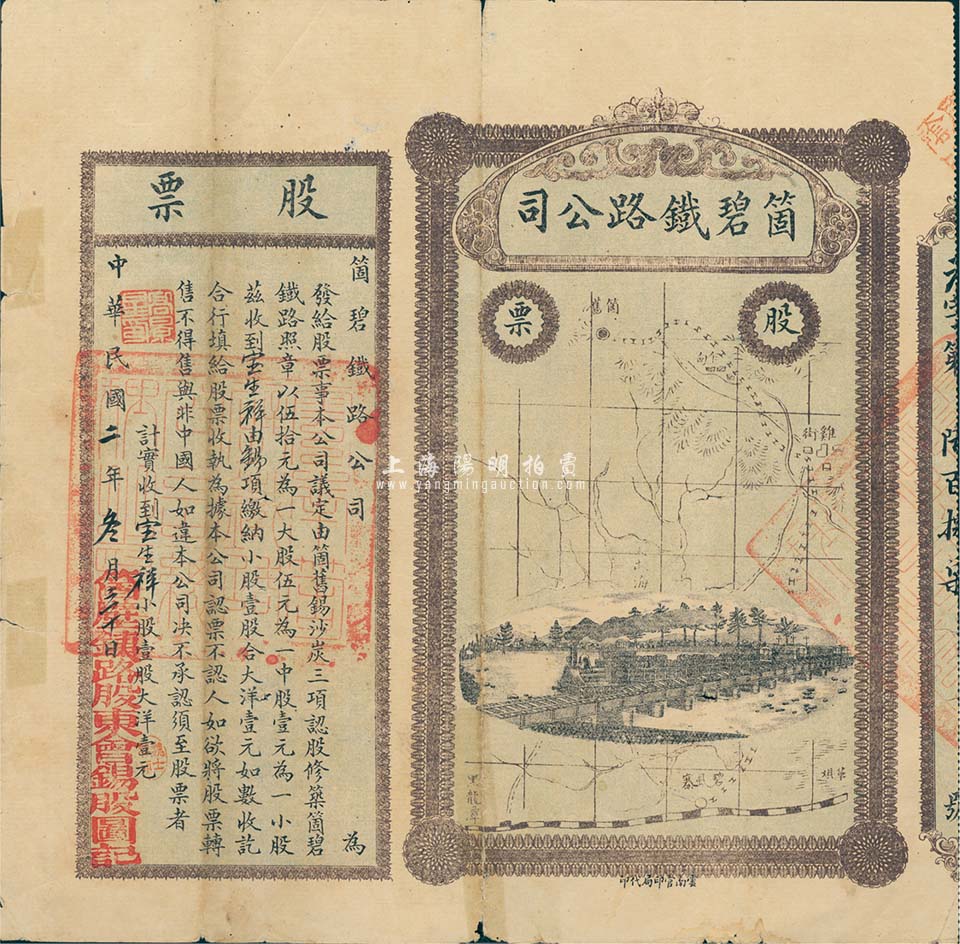 箇碧鐵路公司
股票
箇舊
雞街
碧色寨
雲南官印局代印
股票
箇碧鐵路公司 為
發給股票事本公司議定由箇舊錫沙炭三項認股修築箇碧
鐵路照章以伍拾元為一大股伍元為一中股壹元為一小股
茲收到宝生祥由錫項繳納小股壹股合大洋壹元如數收訖
合行填給股票收執為據本公司認票不認人如欲將股票轉
售不得售與非中國人如違本公司決不承認須至股票者
計實收到宝生祥小股壹股大洋壹元
中華民國二年叁月三十日
路股東會錫股圖記
上海陽明拍賣
www.yangmingauction.com